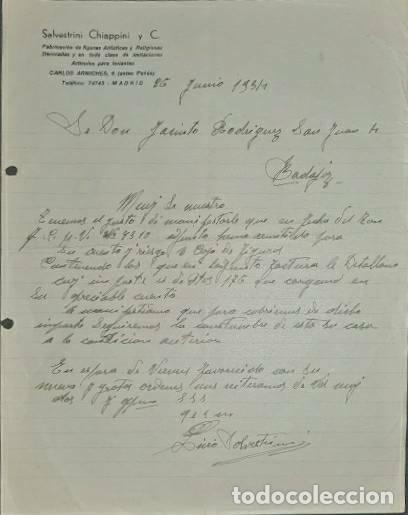 Salvestrini Chiappini y C.
Fabricación de figuras Artísticas y Religiosas
Decoradas y en toda clase de imitaciones
Artículos para feriantes
CARLOS ARNICHES, 6 (antes Peñón)
Teléfono 74743 - MADRID
26 Junio 1931
Sr Don Jacinto Rodriguez San Juan 4
Badajoz
Muy Sr nuestro
Tenemos el gusto di manifestarle que en fecha del
F. C. p. V. 7310 remitido para
Su cuenta y riesgo Caja de figuras
Conteniendo los que en la factura le Detallamos
cuyo importe es de Ptas 176 que cargamos en
Su apreciable cuenta
le manifestamos que para cobrarnos de dicho
importe seguiremos la costumbre de esta su casa
a la condicion anterior
En espera de Vernos favorecido con su
nueva y gratas ordenes nos reiteramos de Vd muy
attos y
q e s m
Salvestrini
todocoleccion.net